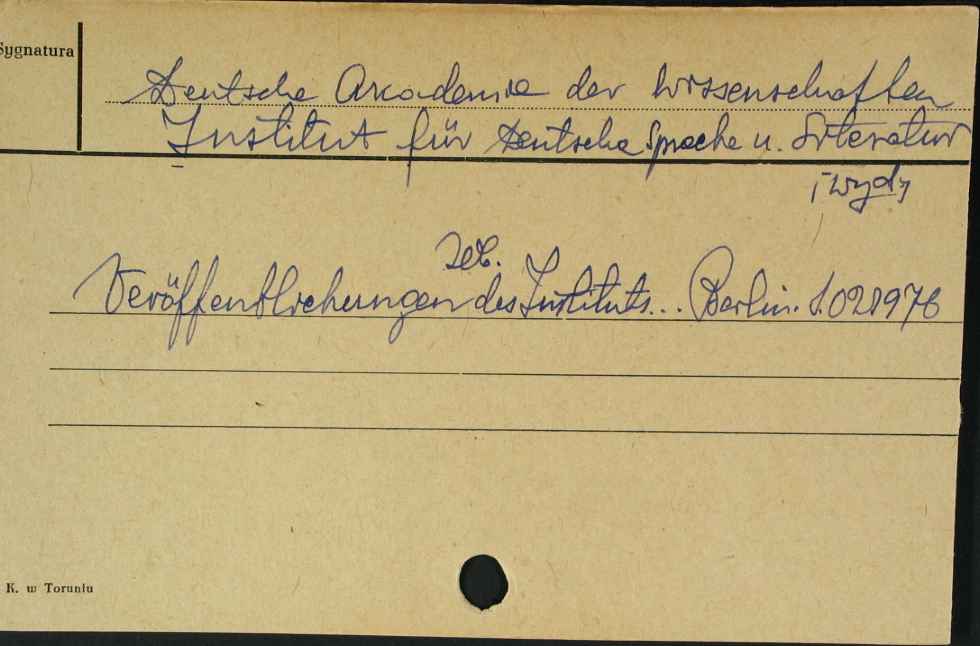 Sygnatura
Deutsche Akademie der Wissenschaften
Institut für Deutsche Sprache u. Literatur
[wyd]
Veröffentlichungen des Instituts... Berlin. S.021976
K. w Toruniu